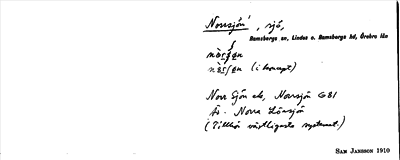 Norrsjön, sjö,
Ramsbergs sn, Lindes o. Ramsbergs hd, Örebro län
(i koncept)
Norr Sjön ek, Norrsjön GBI
Äs. Norra Lönsjön
(Tillhör västligaste systemet.)
SAM JANSSON 1910